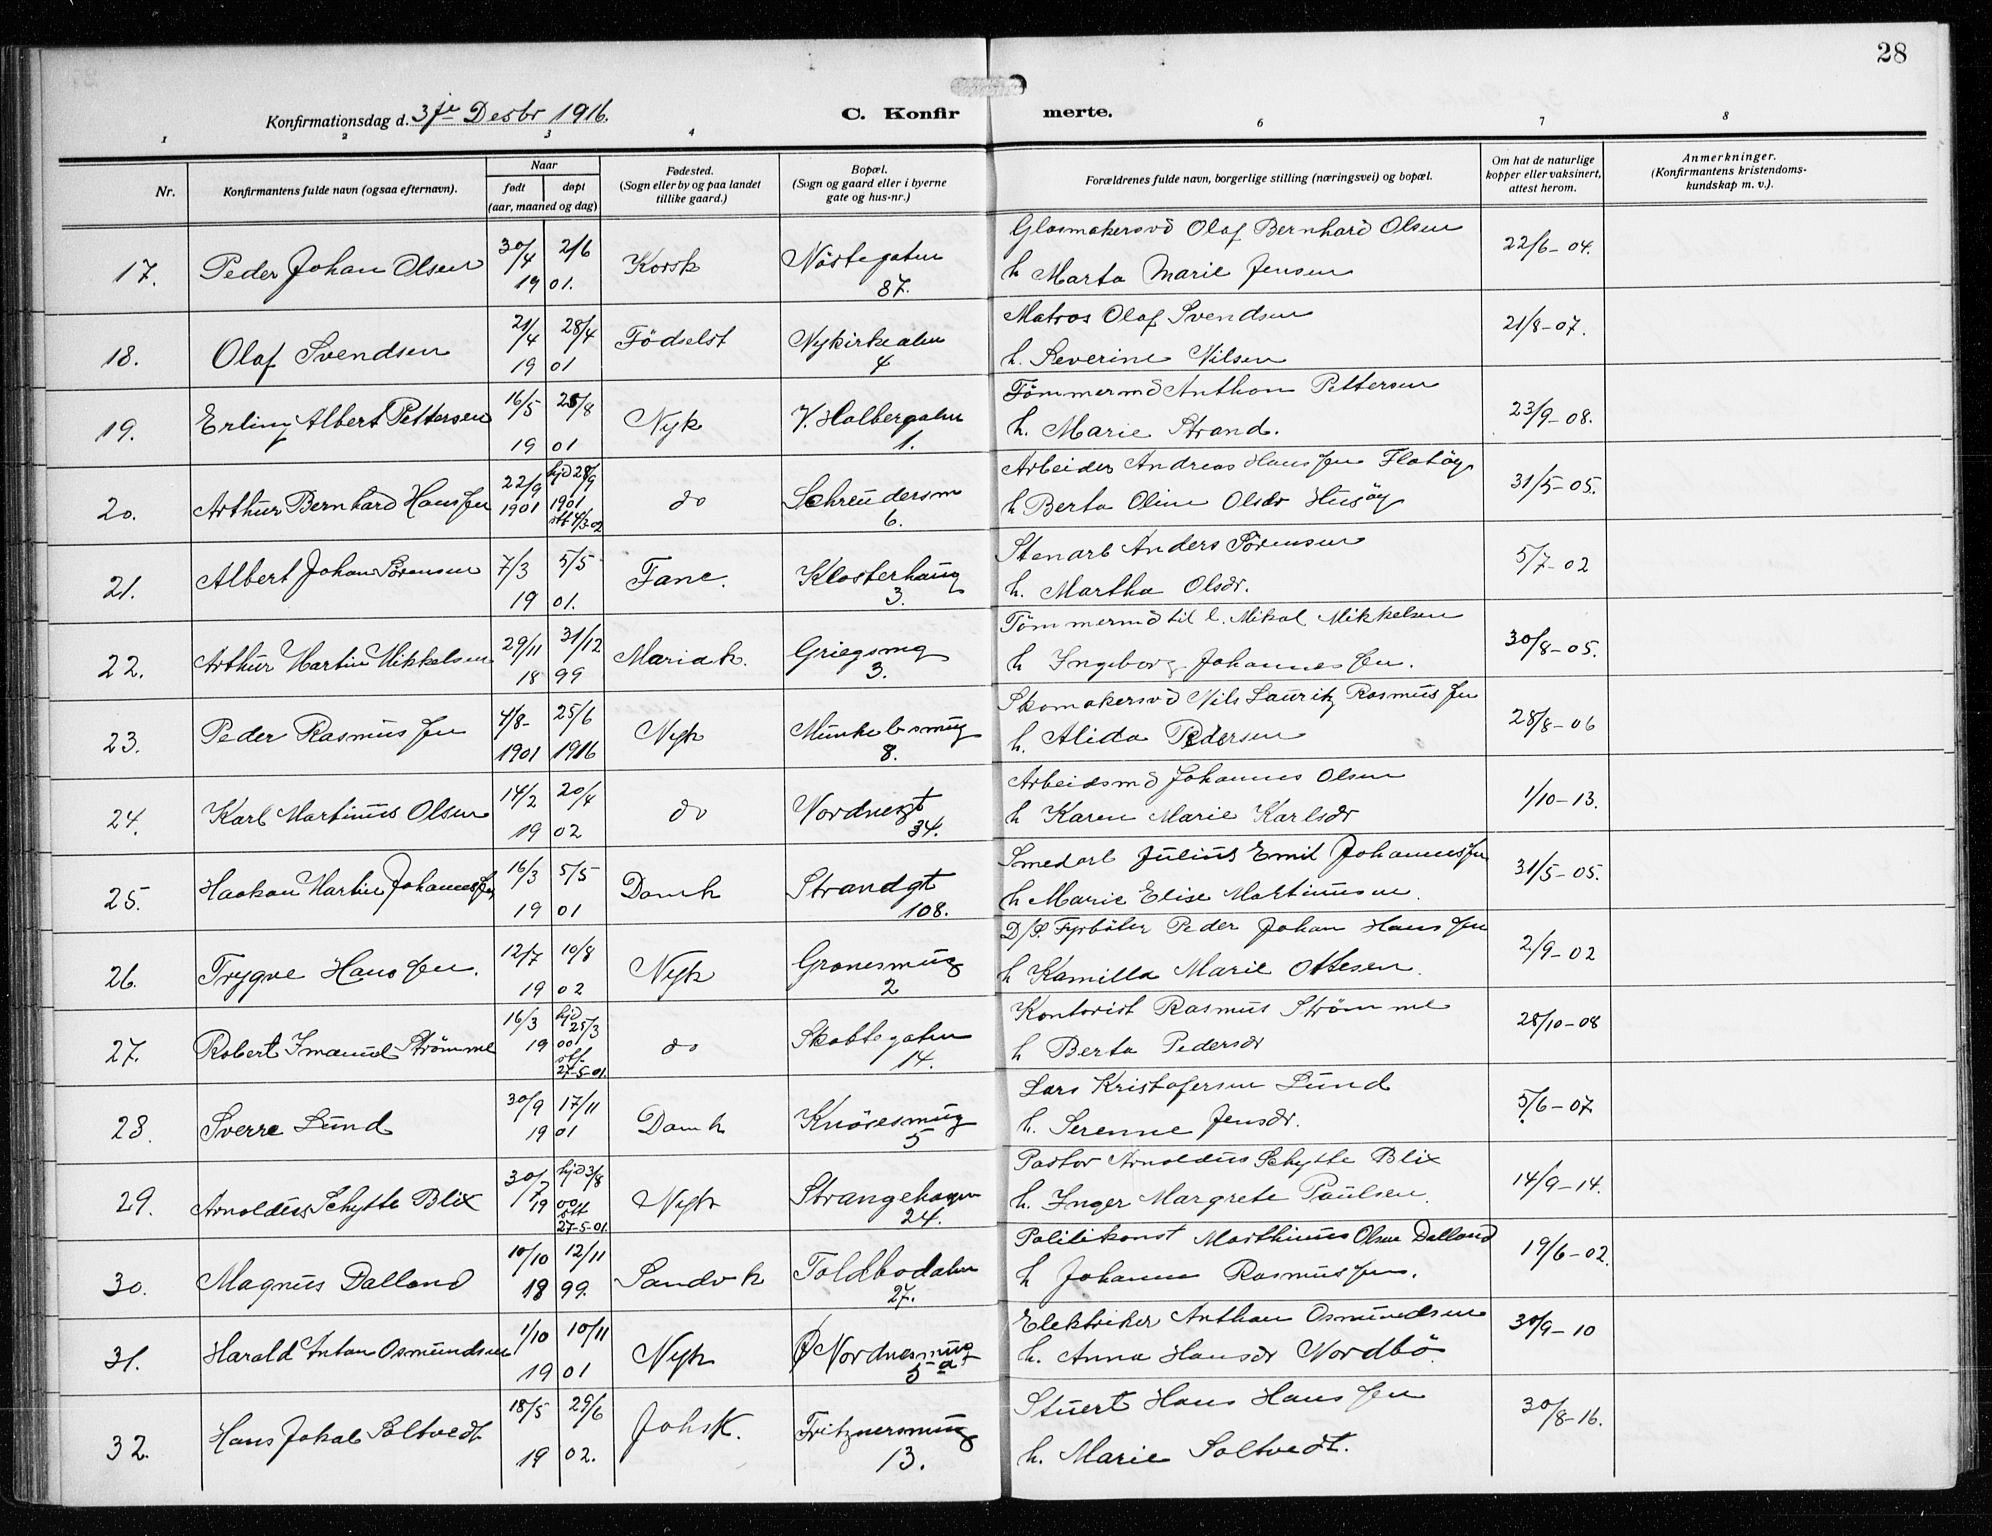 28
Konfirmationsdag d. 3je Desbr 1916.
C. Konfirmerte.
1 2 3 4 5 6 7 8
Nr.
Konfirmantens fulde navn (ogsaa efternavn).
Naar
født døpt
(aar, maaned og dag)
Fødested.
(Sogn eller by og paa landet
tillike gaard.)
Bopæl.
(Sogn og gaard eller i byerne
gate og hus-nr.)
Forældrenes fulde navn, borgerlige stilling (næringsvei) og bopæl.
Om hat de naturlige
kopper eller vaksinert,
attest herom.
Anmerkninger.
(Konfirmantens kristendoms-
kundskap m. v.).
17. Peder Johan Olsen 30/4 2/6 1901. Korsk Nöstegaten 87.
Glasmakersvd Olaf Bernhard Olsen
h Marta Marie Jensen
22/6-04.
18. Olaf Svendsen 21/4 28/4 1901 Födselst Nykirkealm 4
Matros Olaf Svendsen
h. Severine Nilsen
21/8-07.
19. Erling Albert Pettersen 16/5 25/8 1901 Nyk V. Holbergalm 1.
Tömmermd Anthon Pettersen
h. Marie Strand.
23/9-08.
20. Arthur Bernhard Hanssen 22/9 1901 hjd 28/9 1901 stf 4/3 02 do Schreudersm 6.
Arbeider Andreas Hanssen Flatöy
h Berta Oline Olsdr Husöy
31/5-05.
21. Albert Johan Sörensen 7/3 5/5 1901. Fane. Klosterhaug 3.
Stenarb Anders Sörensen
h. Martha Olsdr.
5/7-02
22. Arthur Martin Mikkelsen 29/11 31/12 1899 Mariak. Griegsmg 3.
Tömmermd til l. Mikal Mikkelsen
h Ingeborg Johannessen.
30/8-05.
23. Peder Rasmussen 4/8- 1901 25/6 1916 Nyk Munkebsmug 8.
Skomakersvd Nils Lauritz Rasmussen
h. Alida Pedersen
28/8-06
24. Karl Martinus Olsen 14/2 20/4 1902 do Nordnesgt 34.
Arbeidsmd Johannes Olsen
h Karen Marie Karlsdr
1/10-13.
25. Haakon Martin Johannessen 16/3 5/5 1901 Domk Strandgt 108.
Smedarb Julius Emil Johannessen
h Marie Elise Martinussen.
31/5-05.
26. Trygve Hanssen. 12/7 10/8 1902 Nyk Gronesmug 2
D/S. Fyrböter Peder Johan Hanssen
h Kamilla Marie Ottesen.
2/9-02
27. Robert Imanuel Strömme 16/3 19 hjd 25/3 00 stf. 27-5-01. do Skottegaten 14.
Kontorist Rasmus Strömme
h Berta Pedersdr
28/10-08
28. Sverre Lund 30/9 17/11 1901 Domk Knöresmug 5
Lars Kristofersen Lund
h. Serenne Jensdr.
5/6-07.
29. Arnoldus Schytte Blix 30/7 19 hjd 3/8 00 stf 27-5-01. Nyk Strangehagen 24.
Pastor Arnoldus Schytte Blix
h. Inger Margrete Paulsen.
14/9-14.
30. Magnus Dalland 10/10 12/11 1899. Sandvk Toldbodalm 27.
Politikonst Marthinus Olsen Dalland
h Johanne Rasmussen.
19/6-02.
31. Harald Anton Osmundsen 1/10 10/11 1901 Nyk Ø Nordnesmug 5 a
Elektriker Anthon Osmundsen
h. Anna Hansdr Nordbö
30/9-10
32. Hans Jakob Soltvedt 18/5 29/6 1902. Johsk. Fritznersmug 13.
Stuert Hans Hanssen
h. Marie Soltvedt.
30/8-16.